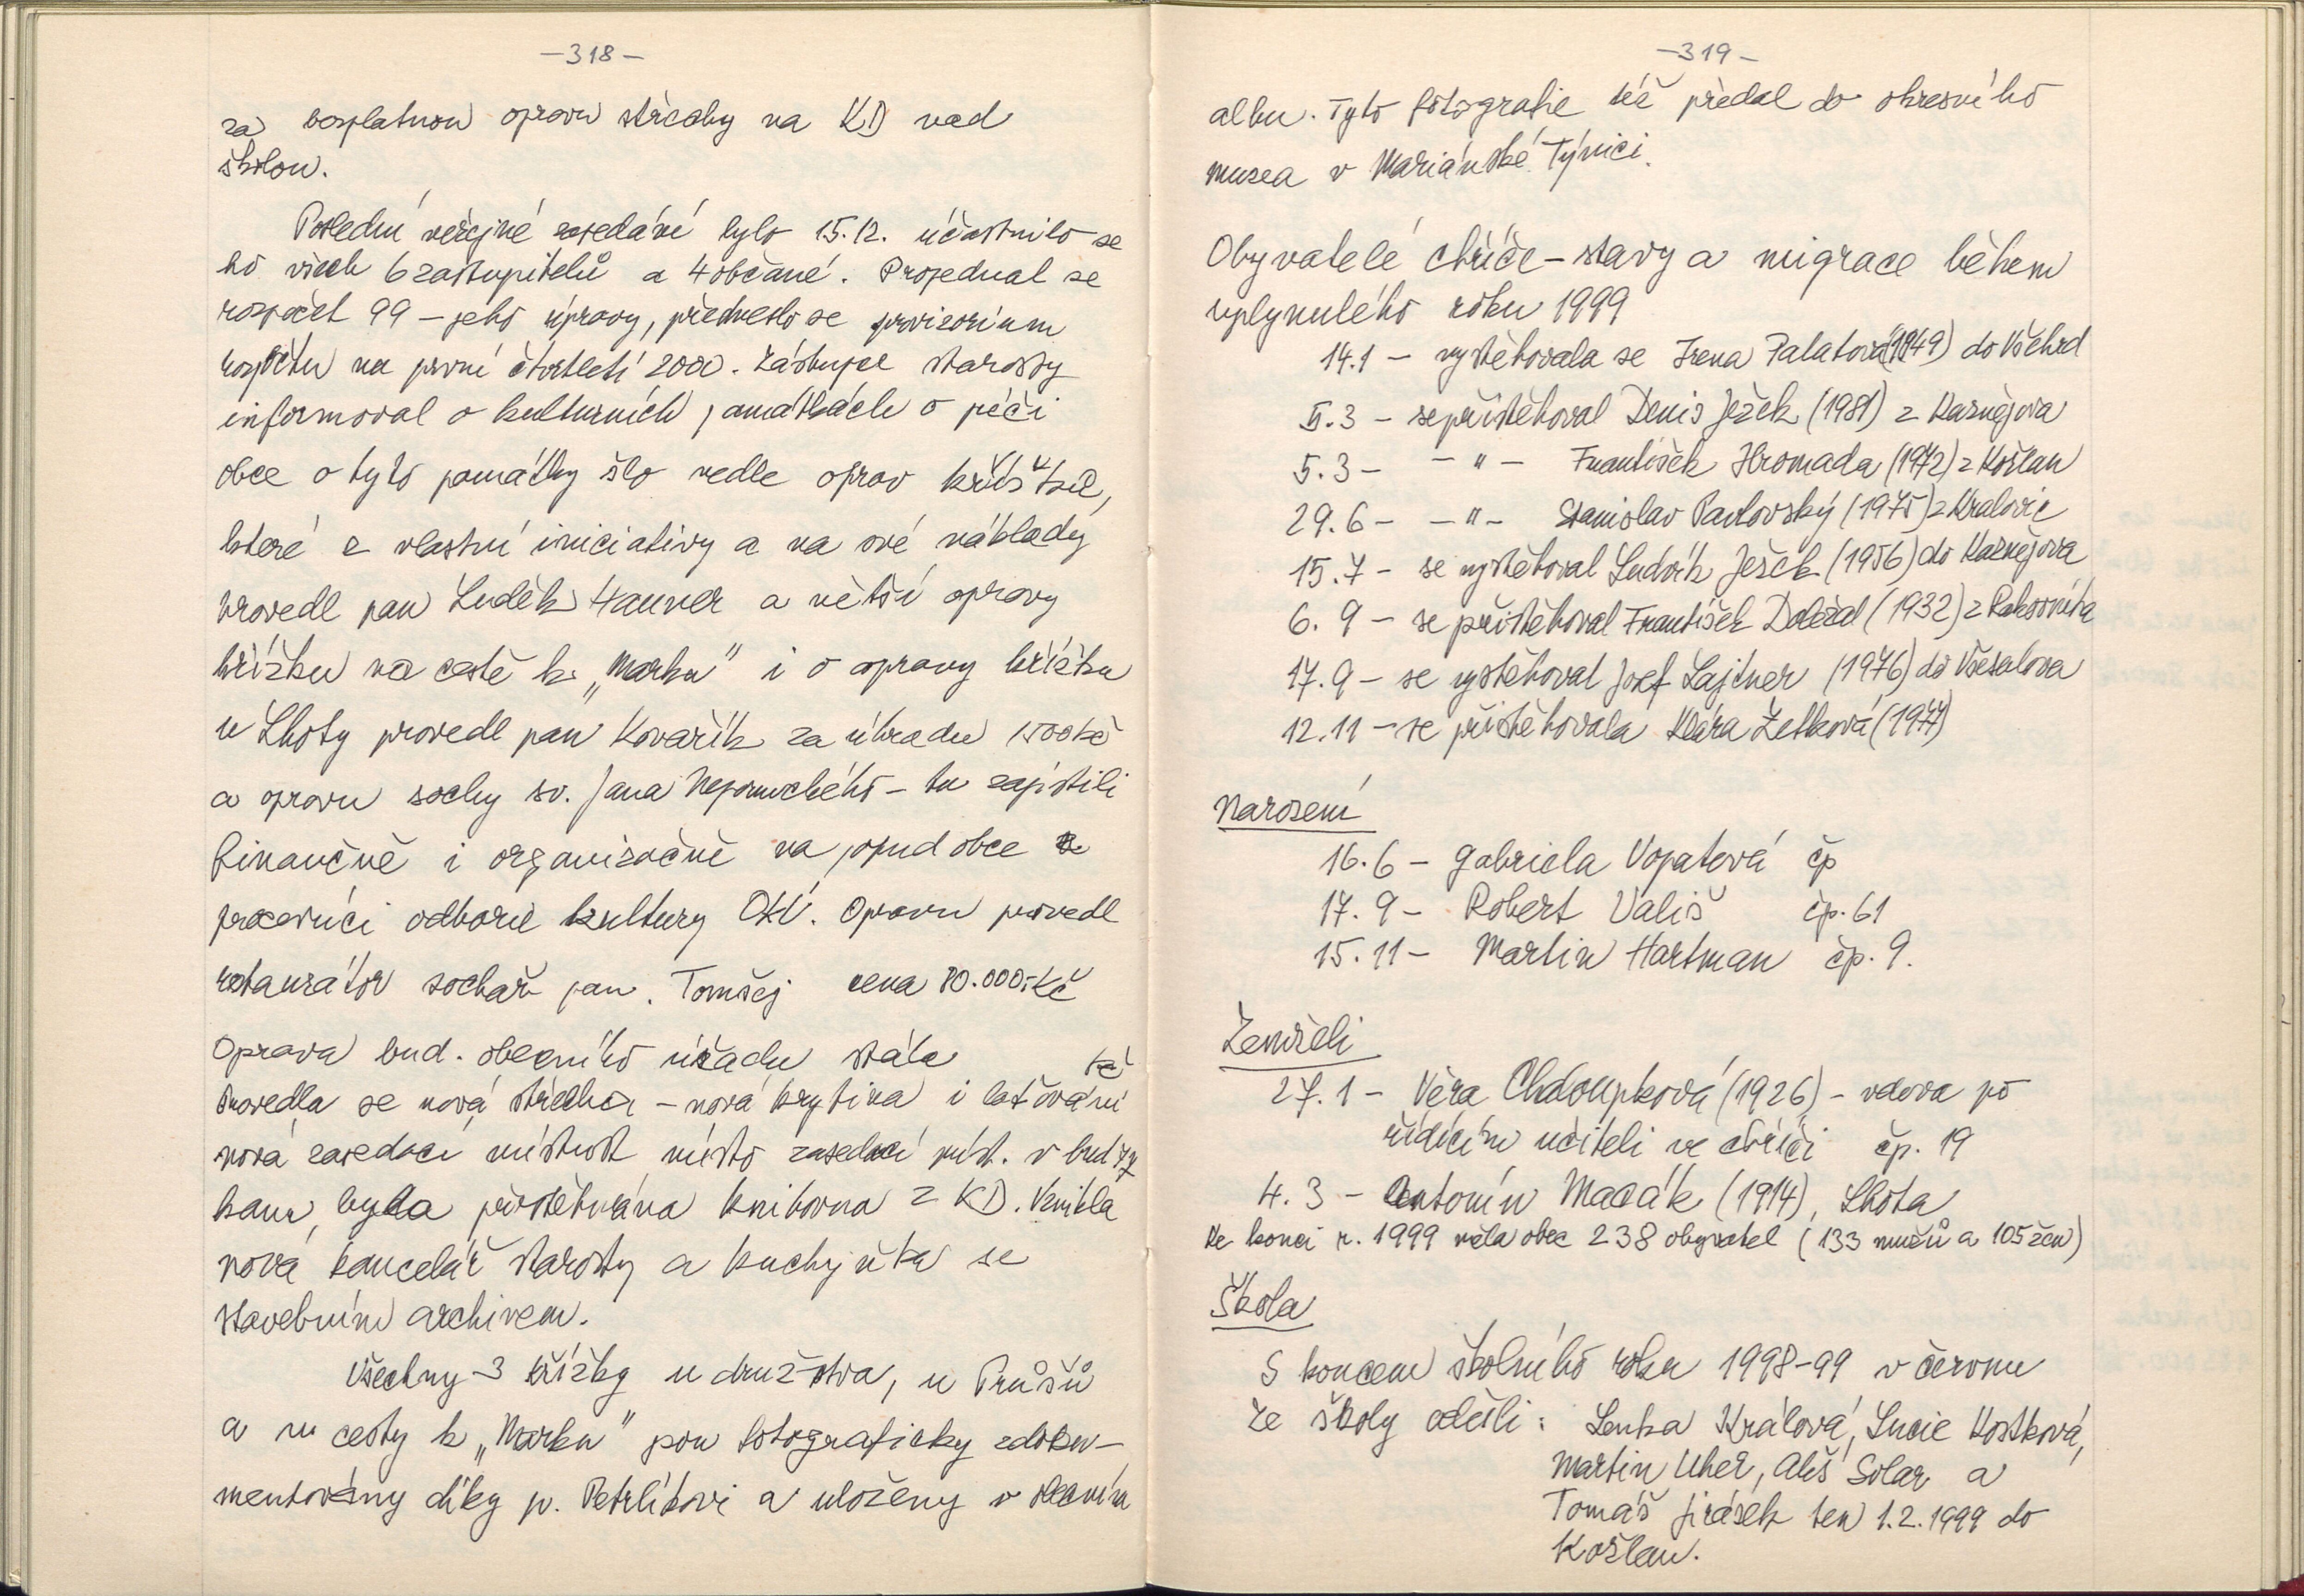 —318—
za bezplatnou opravu střechy na KD nad
školou.
Poslední veřejné zasedání bylo 15.12. účastnilo se
ho všech 6 zastupitelů a 4 občané. Projednal se
rozpočet 99 – jeho úpravy, předneslo se provizorium
rozpočtu na první čtvrtletí 2000. Zástupce starosty
informoval o kulturních památkách o péči
obce o tyto památky šlo vedle oprav
které z vlastní iniciativy a na své náklady
provedl pan Luděk Hanner a větší opravy
křížku na cestě k „Marku" i o opravy křížku
u Lhoty provedl pan Kovařík za úhradu 1500 kč
a opravu sochy sv. Jana Nepomuckého – tu zajistili
finančně i organizačně na popud obce
pracovníci odboru kultury OkÚ. Opravu provedl
restaurátor sochař pan. Tomšej cena 80.000,- Kč
Oprava bud. obecního úřadu stála kč
Provedla se nová střecha – nová krytina i laťování
nová zasedací místnost místo zasedací míst. v bud 77
kam byla přistěhvána knihovna z KD. Vznikla
nová kancelář starosty a kuchyňka se
stavebním archivem.
Všechny 3 křížky u družstva, u Průšů
a u cesty k „Marku" jsou fotograficky zdoku-
mentovány díky p. Petrlíkovi a uloženy v obecním
—319—
albu. Tyto fotografie též předal do okresního
musea v Mariánské Týnici.
Obyvatelé Chříče – stavy a migrace během
uplynulého roku 1999
14.1 – vystěhovala se Irena Palatová (1949) do Všehrd
5.3 – se přistěhoval Denis Ježek (1981) z Kaznějova
5.3 – – " – František Hromada (1972) z Kožlan
29.6 – – " – Stanislav Pavlovský (1975) z Kralovic
15.7 – se vystěhoval Ludvík Ježek (1956) do Kaznějova
6. 9 – se přistěhoval František Doležal (1932) z Rakovníka
17.9 – se vystěhoval Josef Lajtner (1976) do Všesulova
12.11 – se přistěhovala Klára Žetková (1977)
Narození
16.6 – Gabriela Vopatová čp
17. 9 – Robert Vališ čp. 61
15. 11 – Martin Hartman čp. 9.
Zemřeli
27. 1 – Věra Chaloupková (1926) – vdova po
řídícím učiteli ve Chříči čp. 19
4. 3 – Antonín Macák (1914), Lhota
Ke konci r. 1999 měla obec 238 obyvatel (133 mužů a 105 žen)
Škola
S koncem školního roku 1998-99 v červnu
ze školy odešli: Lenka Králová, Lucie Kostková,
Martin Uher, Aleš Solar a
Tomáš Jirásek ten 1.2.1999 do
Kožlan.